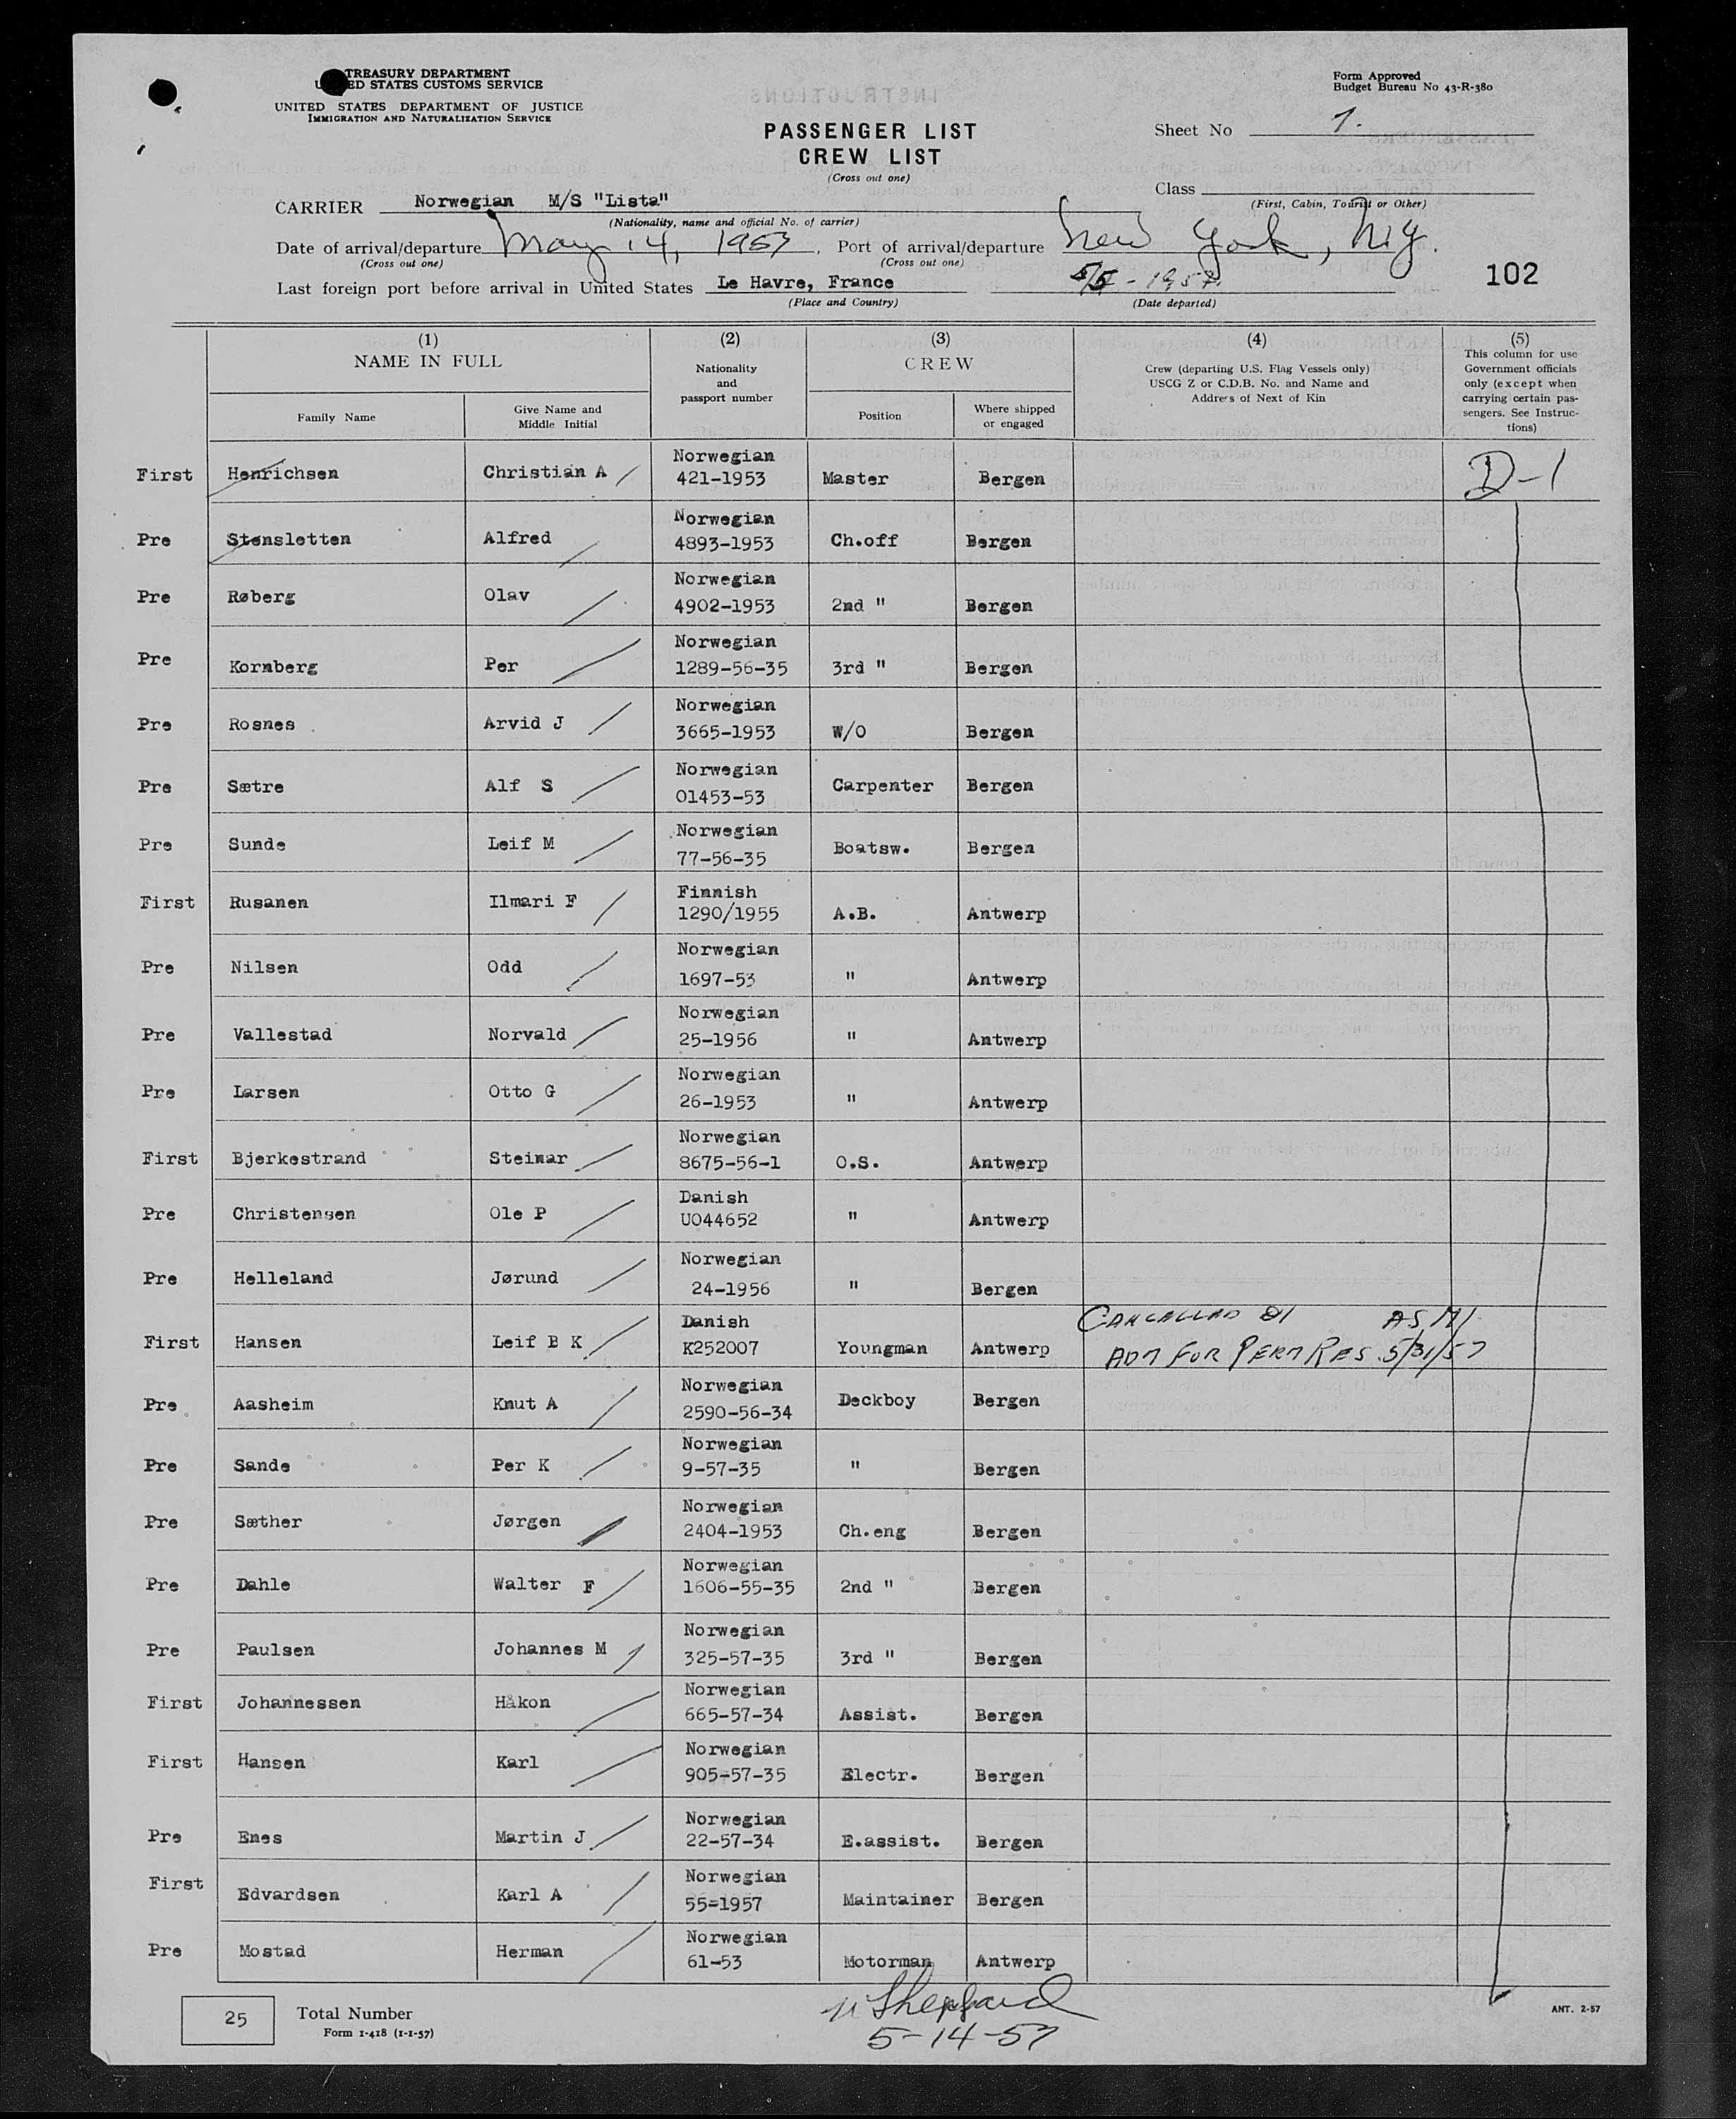 TREASURY DEPARTMENT
ED STATES CUSTOMS SERVICE
UNITED STATES DEPARTMENT OF JUSTICE
IMMIGRATION AND NATURALIZATION SERVICE
Form Approved
Budget Bureau No 43-R-380
PASSENGER LIST
CREW LIST
(Cross out one)
Sheet No 1.
Class
(First, Cabin, Tourist or Other)
CARRIER Norwegian M/S "Lista"
(Nationality, name and official No. of carrier)
Date of arrival/departure May 14, 1957, Port of arrival/departure New York, N.Y.
(Cross out one) (Cross out one)
102
Last foreign port before arrival in United States Le Havre, France 5/5-1957.
(Place and Country) (Date departed)
(1) (2) (3) (4) (5)
NAME IN FULL
Nationality and passport number
CREW
Crew (departing U.S. Flag Vessels only) USCG Z or C.D.B. No. and Name and Address of Next of Kin
This column for use Government officials only (except when carrying certain passengers. See Instructions)
Family Name Give Name and Middle Initial Position Where shipped or engaged
First Henrichsen Christian A Norwegian 421-1953 Master Bergen D-1
Pre Stensletten Alfred Norwegian 4893-1953 Ch.off Bergen
Pre Røberg Olav Norwegian 4902-1953 2nd " Bergen
Pre Kornberg Per Norwegian 1289-56-35 3rd " Bergen
Pre Rosnes Arvid J Norwegian 3665-1953 W/O Bergen
Pre Sætre Alf S Norwegian 01453-53 Carpenter Bergen
Pre Sunde Leif M Norwegian 77-56-35 Boatsw. Bergen
First Rusanen Ilmari F Finnish 1290/1955 A.B. Antwerp
Pre Nilsen Odd Norwegian 1697-53 " Antwerp
Pre Vallestad Norvald Norwegian 25-1956 " Antwerp
Pre Larsen Otto G Norwegian 26-1953 " Antwerp
First Bjerkestrand Steinar Norwegian 8675-56-1 O.S. Antwerp
Pre Christensen Ole P Danish U044652 " Antwerp
Pre Helleland Jørund Norwegian 24-1956 " Bergen
First Hansen Leif B K Danish K252007 Youngman Antwerp CANCELLED D1 AS M1 ADM FOR PERM RES 5/31/57
Pre Aasheim Knut A Norwegian 2590-56-34 Deckboy Bergen
Pre Sande Per K Norwegian 9-57-35 " Bergen
Pre Sæther Jørgen Norwegian 2404-1953 Ch.eng Bergen
Pre Dahle Walter F Norwegian 1606-55-35 2nd " Bergen
Pre Paulsen Johannes M Norwegian 325-57-35 3rd " Bergen
First Johannessen Håkon Norwegian 665-57-34 Assist. Bergen
First Hansen Karl Norwegian 905-57-35 Electr. Bergen
Pre Enes Martin J Norwegian 22-57-34 E.assist. Bergen
First Edvardsen Karl A Norwegian 55=1957 Maintainer Bergen
Pre Mostad Herman Norwegian 61-53 Motorman Antwerp
25 Total Number
Form I-418 (1-1-57)
Sheppard
5-14-57
ANT. 2-57